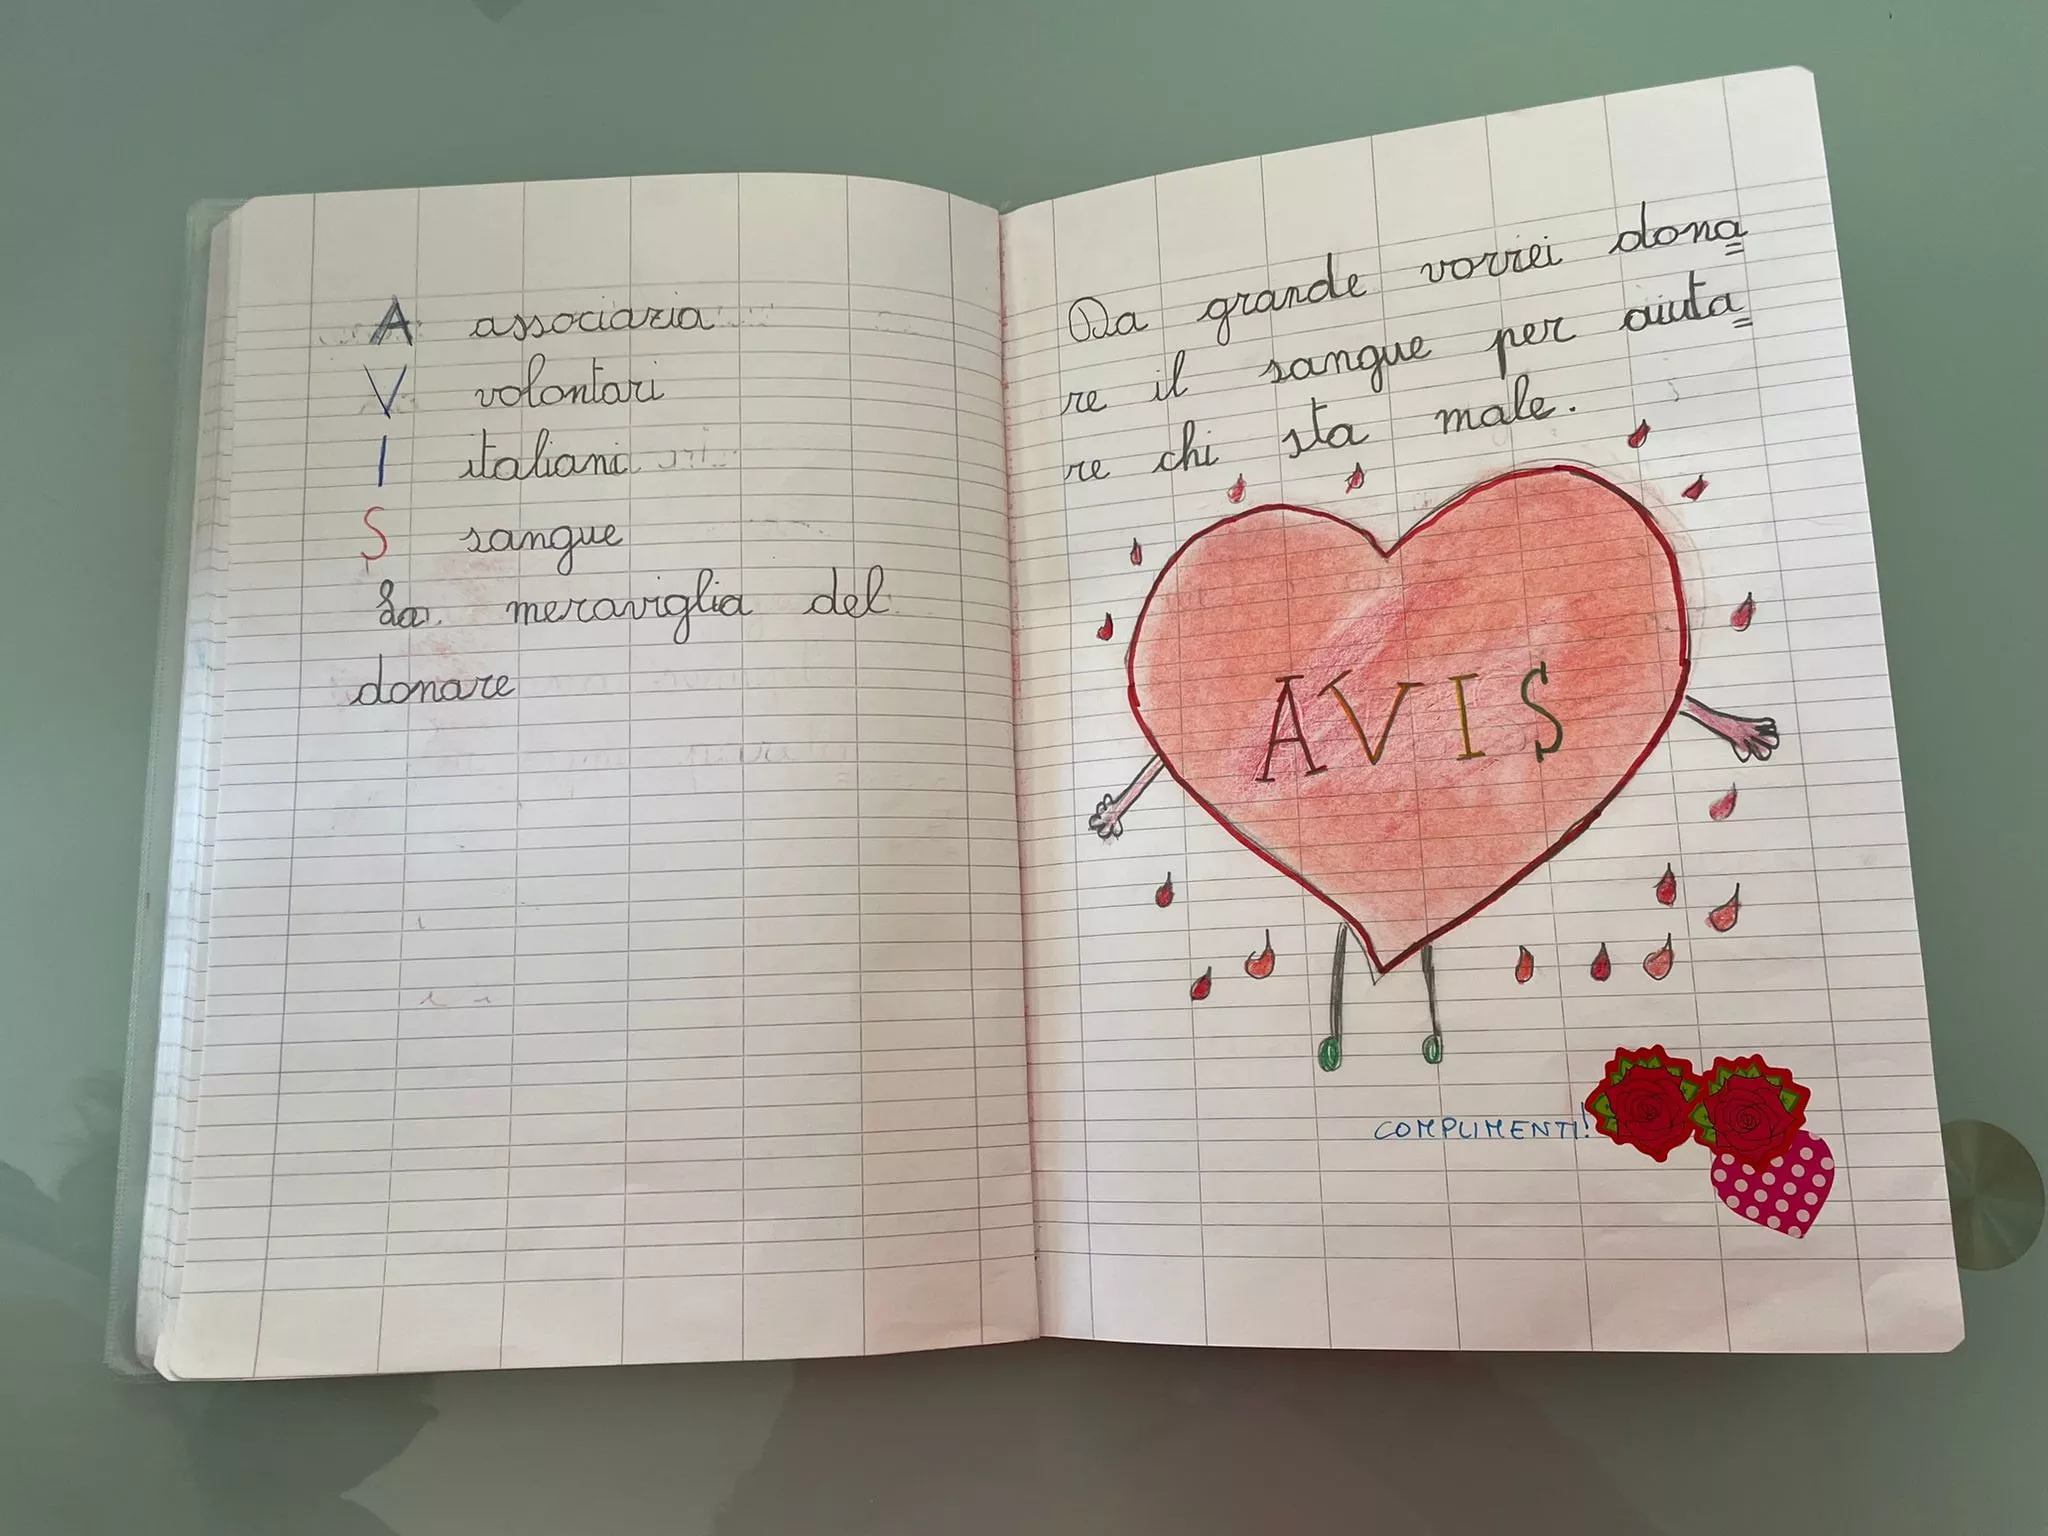 A associazia
V volontari
I italiani
S sangue
La meraviglia del
donare
Da grande vorrei dona=
re il sangue per aiuta=
re chi sta male.
AVIS
COMPLIMENTI!